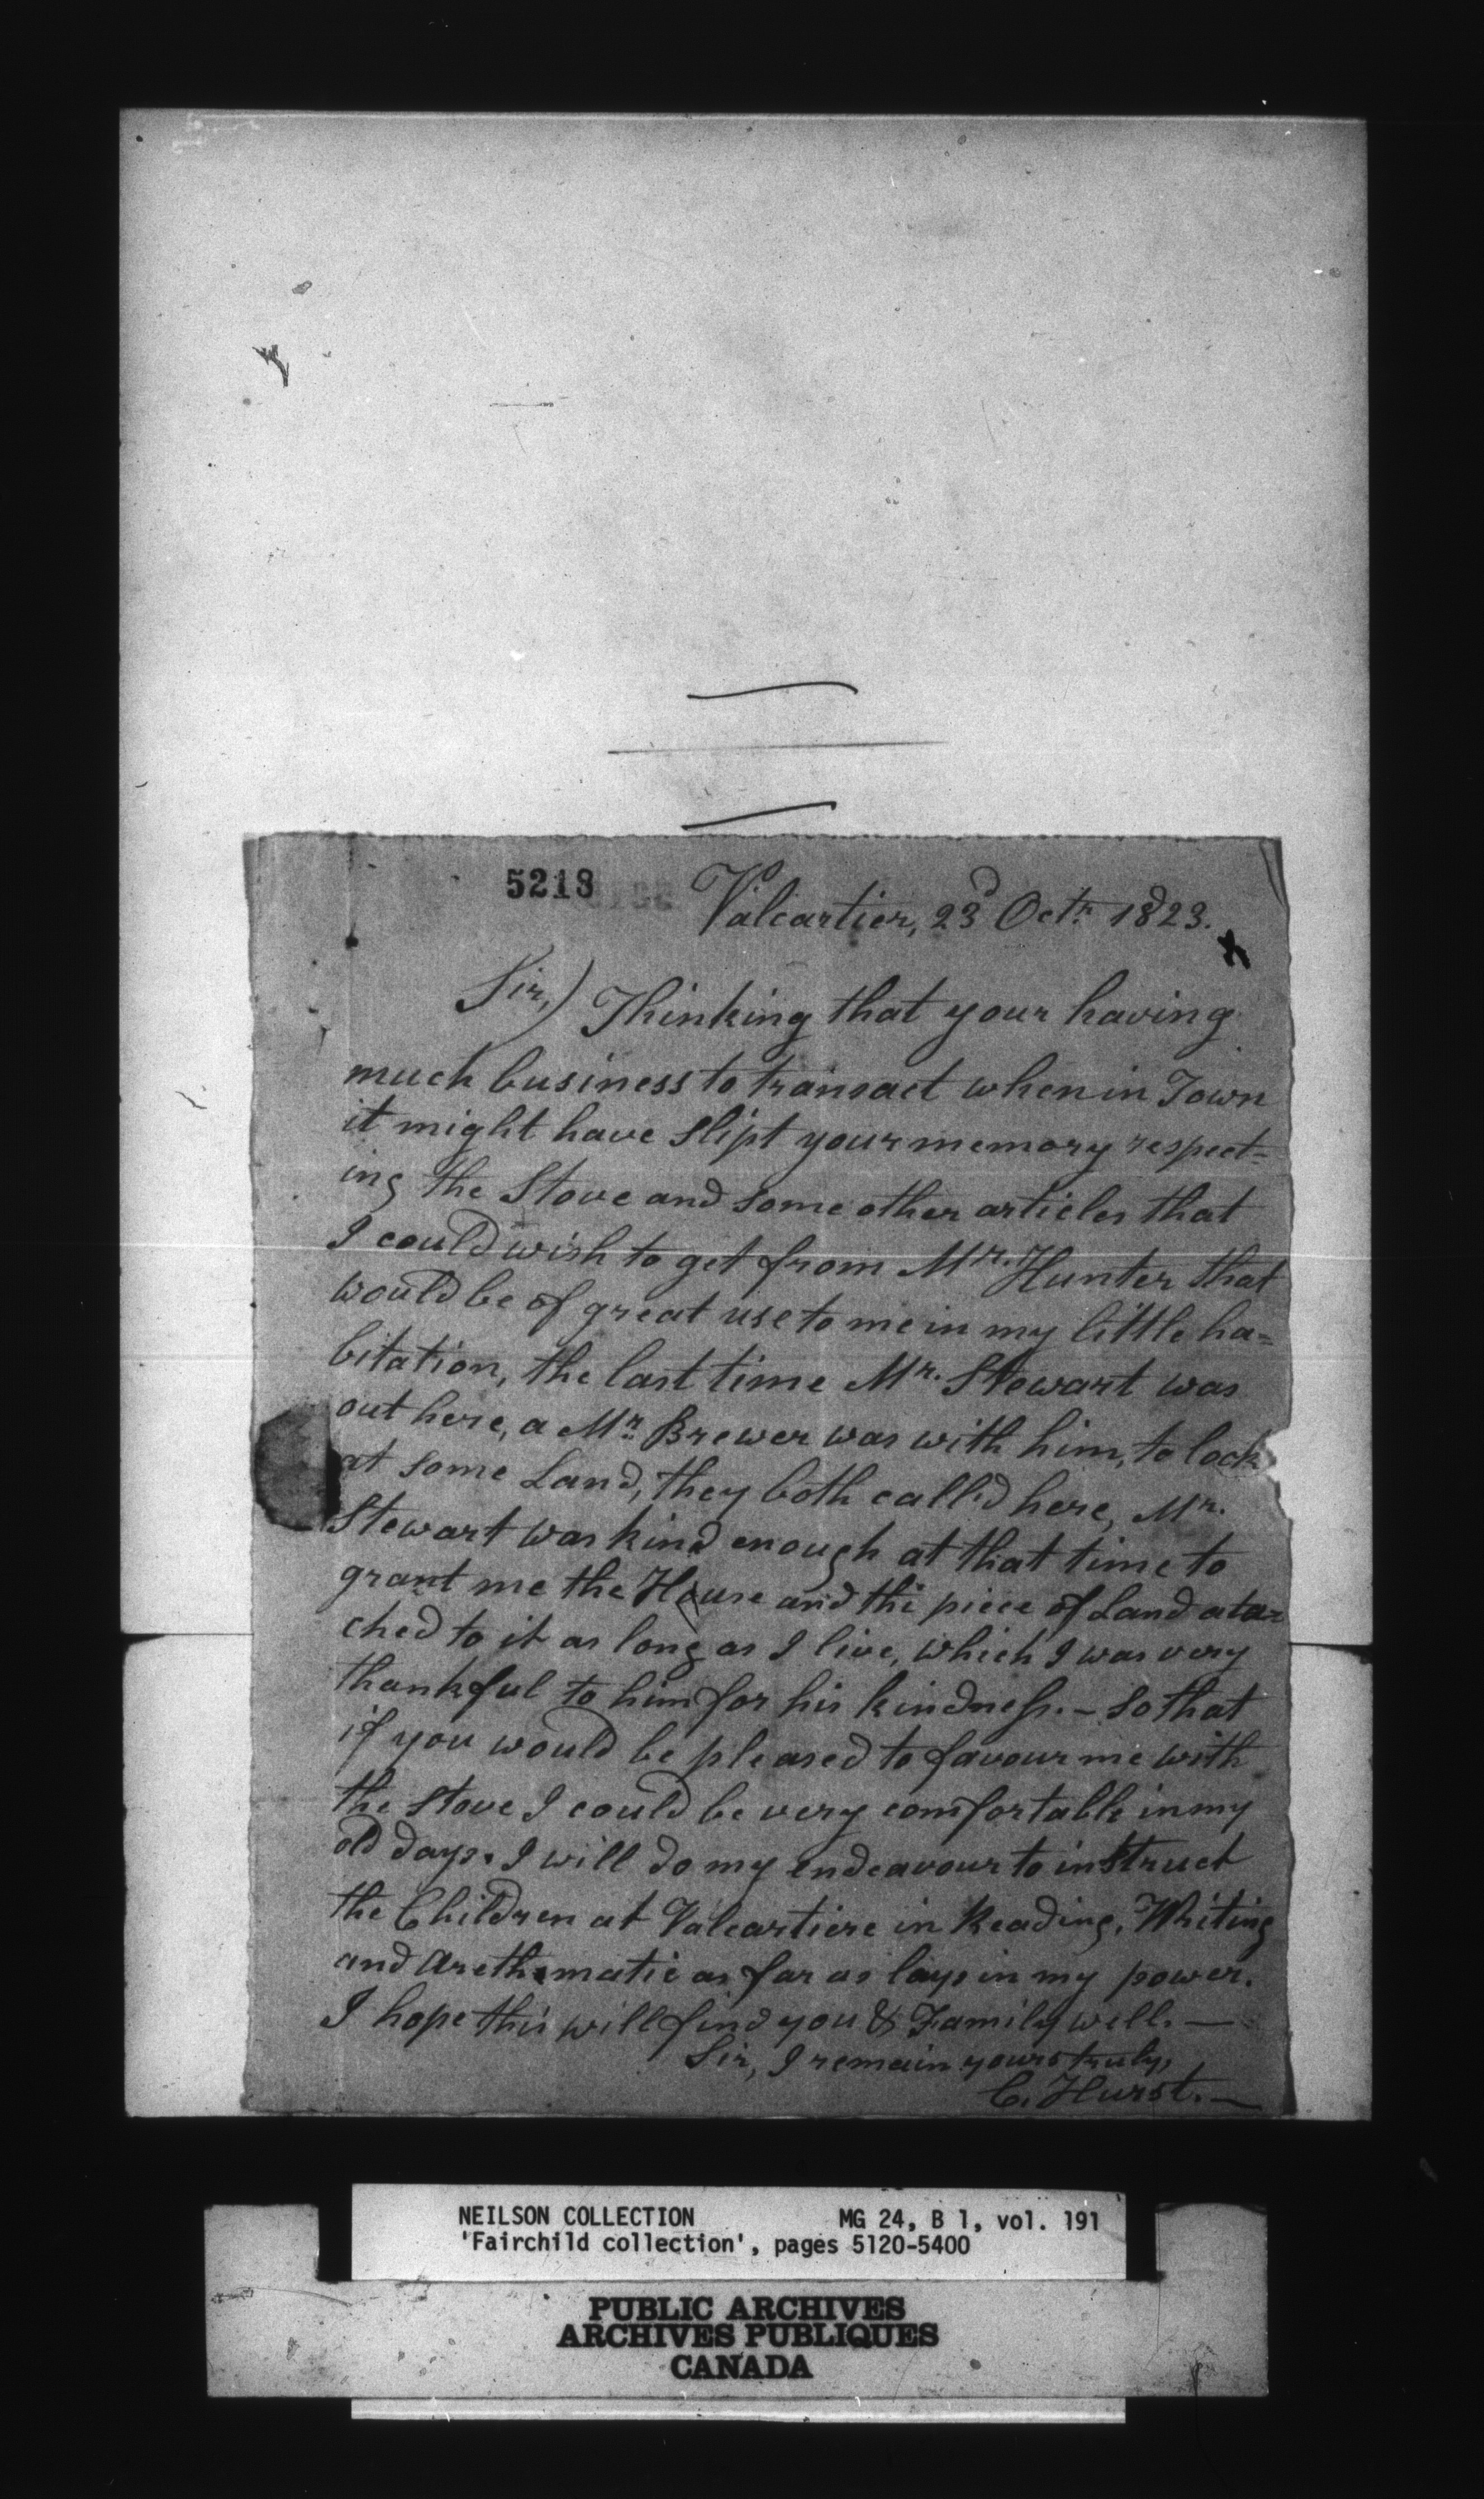 5218
Valcartier, 23d Octr. 1823.
Sir,) Thinking that your having
much business to transact when in Town
it might have slipt your memory respect=
ing the Stove and some other articles that
I could wish to get from Mr. Hunter that
would be of great use to me in my little ha=
bitation, the last time Mr. Stewart was
out here, a Mr. Brewer was with him, to look
at some Land, they both call'd here, Mr.
Stewart was kind enough at that time to
grant me the House and the piece of Land ata=
ched to it as long as I live, which I was very
thankful to him for his kindness. - So that
if you would be pleased to favour me with
the Stove I could be very comfortable in my
old days. I will do my endeavour to instruct
the Children at Valcartiere in Reading, Whiting
and Arethmatic as far as lays in my power.
I hope this will find you & Family well. —
Sir, I remain yours truly,
C. Hurst. —
NEILSON COLLECTION MG 24, B 1, vol. 191
'Fairchild collection', pages 5120-5400
PUBLIC ARCHIVES
ARCHIVES PUBLIQUES
CANADA